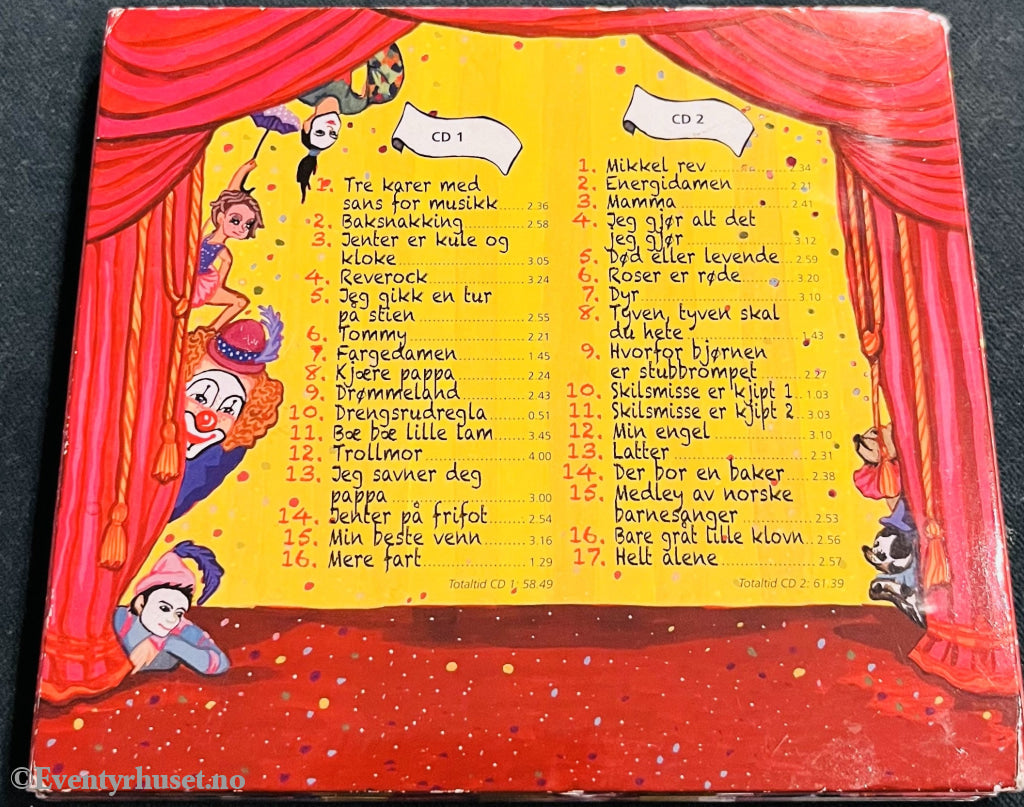 CD 1
1. Tre karer med
sans for musikk........ 2.36
2. Baksnakking............ 2.58
3. Jenter er kule og
kloke....................... 3.05
4. Reverock................. 3.24
5. Jeg gikk en tur
på stien.................. 2.55
6. Tommy.................... 2.21
7. Fargedamen............. 1.45
8. Kjære pappa............ 2.24
9. Drømmeland............. 2.43
10. Drengsrudregla........ 0.51
11. Bæ bæ lille lam....... 3.45
12. Trollmor.................. 4.00
13. Jeg savner deg
pappa..................... 3.00
14. Jenter på frifot........ 2.54
15. Min beste venn........ 3.16
16. Mere fart................ 1.29
Totaltid CD 1; 58.49
CD 2
1. Mikkel rev............... 2.34
2. Energidamen............ 2.21
3. Mamma................... 2.41
4. Jeg gjør alt det
jeg gjør................... 3.12
5. Død eller levende..... 2.59
6. Roser er røde........... 3.20
7. Dyr......................... 3.10
8. Tyven, tyven skal
du hete.................... 1.43
9. Hvorfor bjørnen
er stubbrompet......... 2.27
10. Skilsmisse er kjipt 1.. 1.03
11. Skilsmisse er kjipt 2.. 3.03
12. Min engel................ 3.10
13. Latter..................... 2.31
14. Der bor en baker...... 2.38
15. Medley av norske
barnesanger............. 2.53
16. Bare gråt lille klovn.. 2.56
17. Helt alene............... 2.57
Totaltid CD 2: 61.39
©Eventyrhuset.no